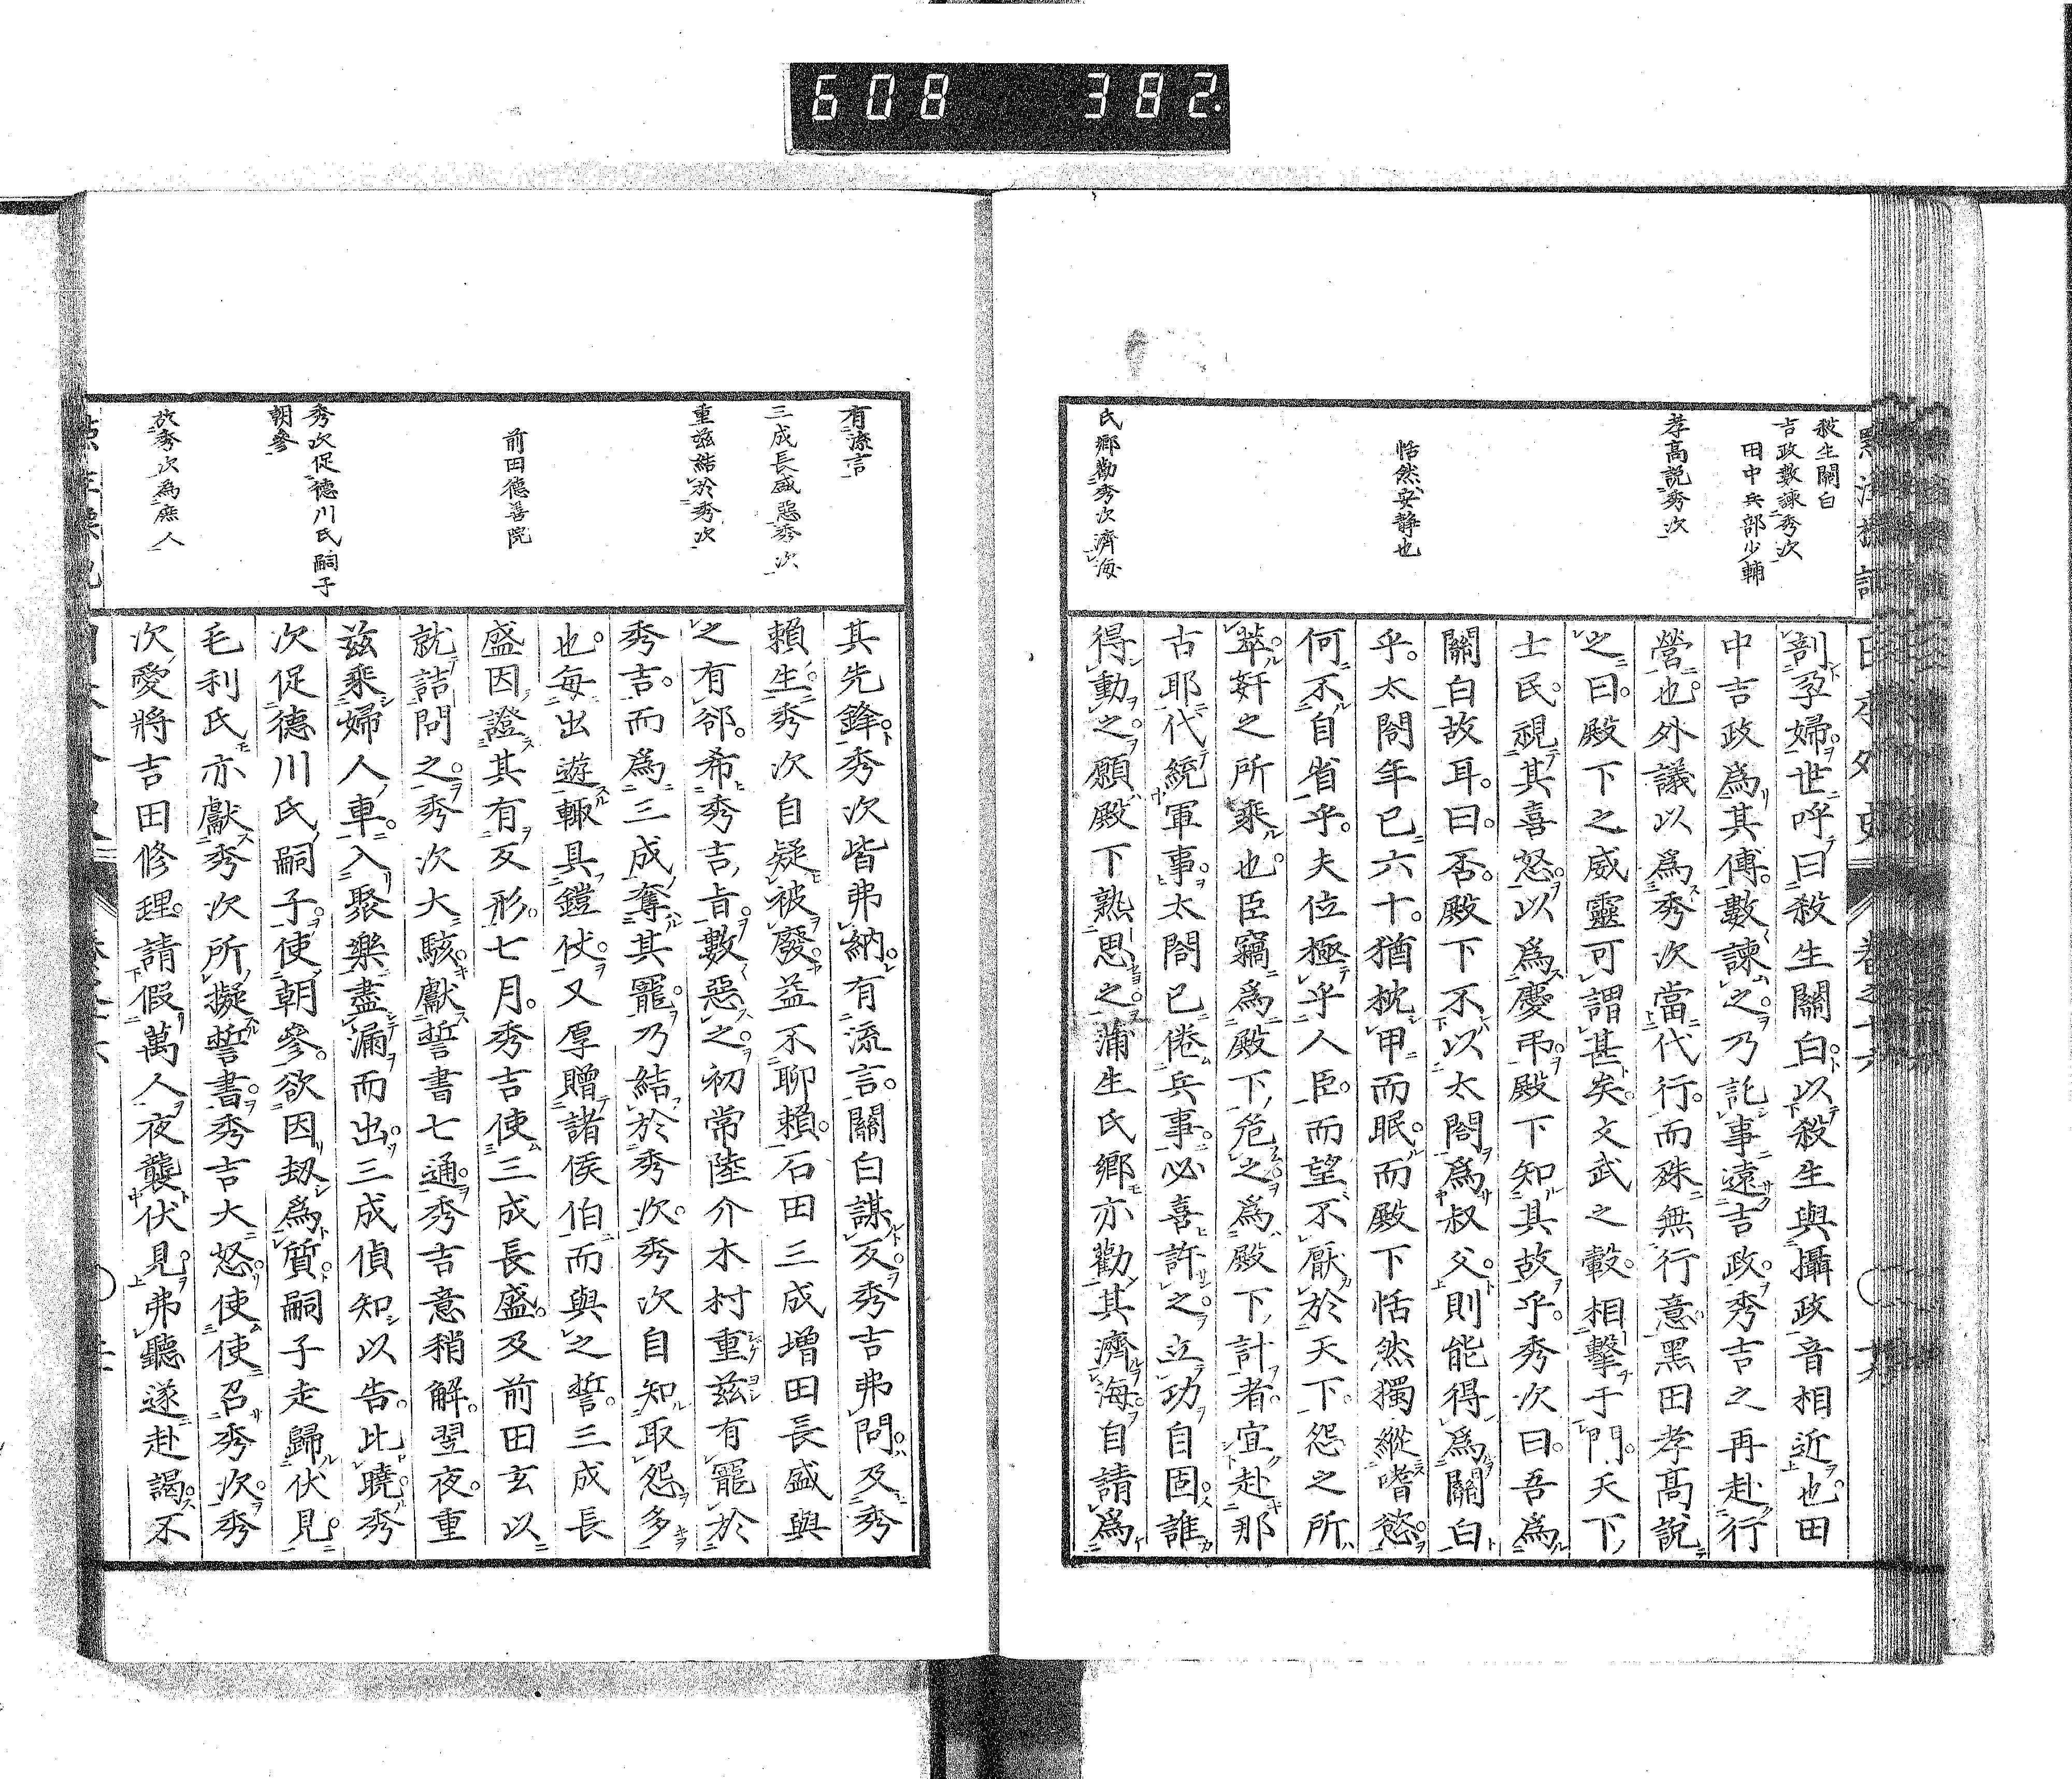 608 382
殺生關白
吉政數諫秀次
田中兵部少輔
孝高説秀次
恬然安靜也
氏鄉勸秀次濟海
剖孕婦世呼曰殺生關白以殺生與攝政音相近也田
中吉政爲其傅數諫之乃託事遠吉政秀吉之再赴行
營也外議以爲秀次當代行而殊無行意黑田孝高説
之曰殿下之威靈可謂甚矣文武之轂相擊于門天下
士民視其喜怒以爲慶弔殿下知其故乎秀次曰吾爲
關白故耳曰否殿下不以太閤爲叔父則能得爲關白
乎太閤年已六十猶枕甲而眠而殿下恬然獨縱嗜慾
何不自省乎夫位極乎人臣而望不厭於天下怨之所
萃奸之所乘也臣竊爲殿下危之爲殿下計者宜赴那
古耶代統軍事太閤已倦兵事必喜許之立功自固誰
得動之願殿下熟思之蒲生氏鄉亦勸其濟海自請爲
有流言
三成長盛惡秀次
重茲結於秀次
前田德善院
秀次促德川氏嗣子
朝參
放秀次爲庶人
其先鋒秀次皆弗納有流言關白謀反秀吉弗問及秀
賴生秀次自疑被廢益不聊賴石田三成增田長盛與
之有郤希秀吉旨數惡之初常陸介木村重茲有寵於
秀吉而爲三成奪其寵乃結於秀次秀次自知取怨多
也每出遊輙具鎧仗又厚贈諸侯伯而與之誓三成長
盛因證其有反形七月秀吉使三成長盛及前田玄以
就詰問之秀次大駭獻誓書七通秀吉意稍解翌夜重
茲乘婦人車入聚樂盡漏而出三成偵知以告比曉秀
次促德川氏嗣子使朝參欲因劫爲質嗣子走歸伏見
毛利氏亦獻秀次所擬誓書秀吉大怒使使召秀次秀
次愛將吉田修理請假萬人夜襲伏見弗聽遂赴謁不